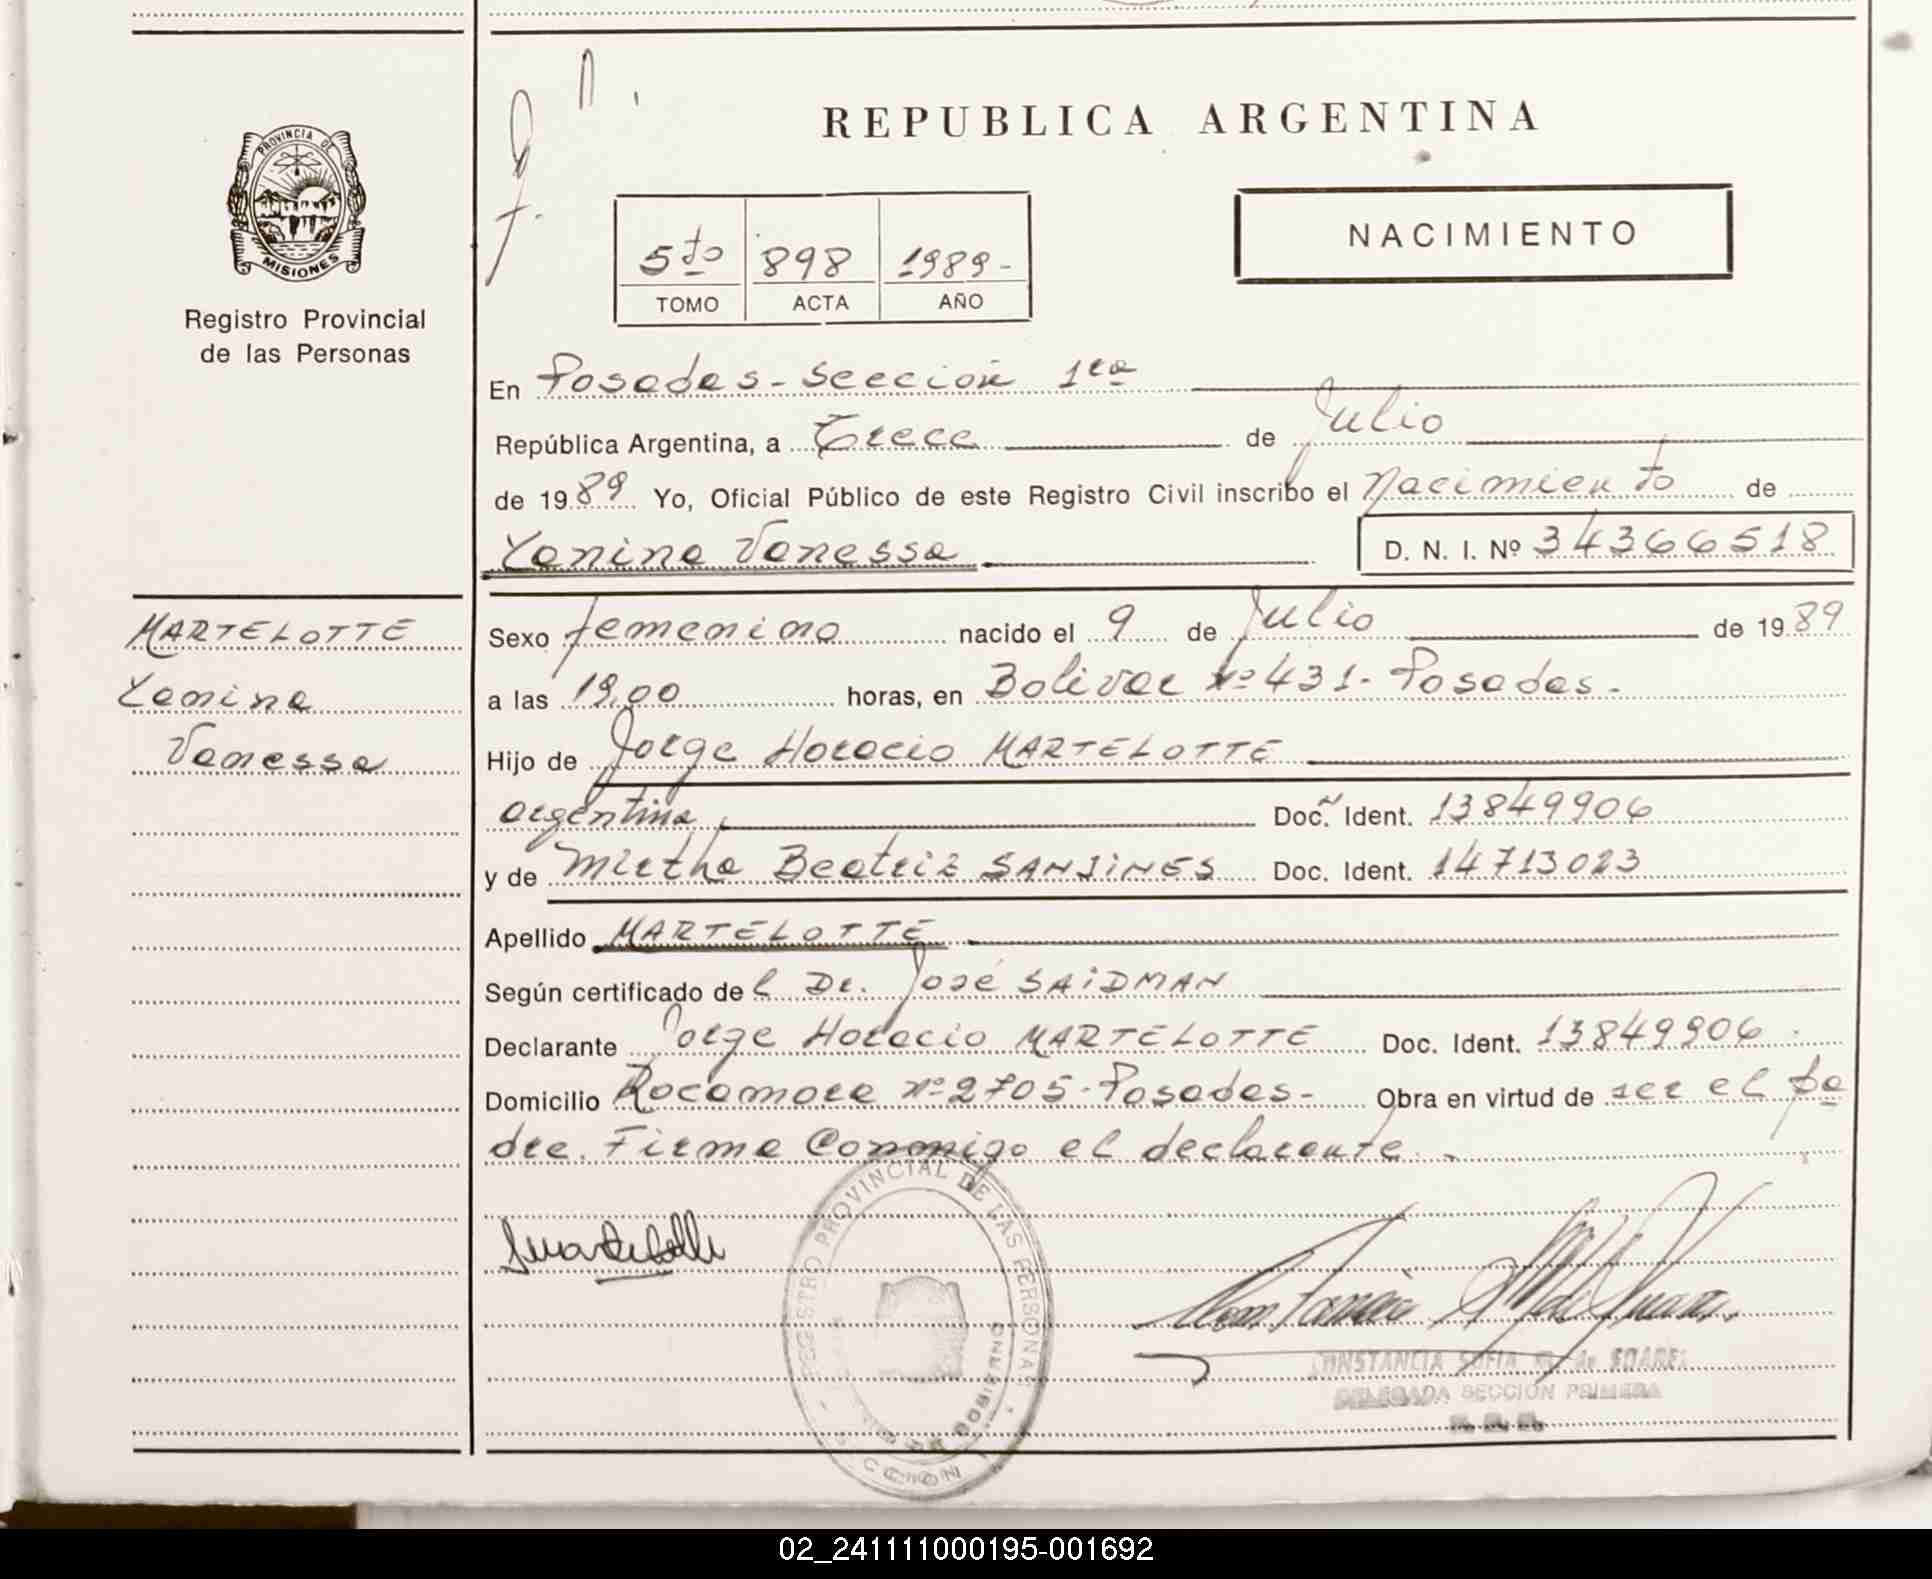 REPUBLICA ARGENTINA
PROVINCIA DE
MISIONES
Registro Provincial
de las Personas
NACIMIENTO
5to 898 1989-
TOMO ACTA AÑO
En Posadas - Sección 1ra
República Argentina, a Trece de Julio
de 1989 Yo, Oficial Público de este Registro Civil inscribo el Nacimiento de
Yanina Vanessa D. N. I. Nº 34366518
MARTELOTTE
Yanina
Vanessa
Sexo femenino nacido el 9 de Julio de 1989
a las 19,00 horas, en Bolivar Nº 431- Posadas-
Hijo de Jorge Horacio MARTELOTTE
argentina Doc. Ident. 13849906
y de Mirtha Beatriz SANJINES Doc. Ident. 14713023
Apellido MARTELOTTE
Según certificado del Dr. José SAIDMAN
Declarante Jorge Horacio MARTELOTTE Doc. Ident. 13849906
Domicilio Rocamora nº 2705- Posadas- Obra en virtud de ser el pa
dre. Firma Conmigo el declarante.-
REGISTRO PROVINCIAL DE LAS PERSONAS
CONSTANCIA SOFIA M. de SUAREZ
DELEGADA SECCIÓN PRIMERA
02_241111000195-001692